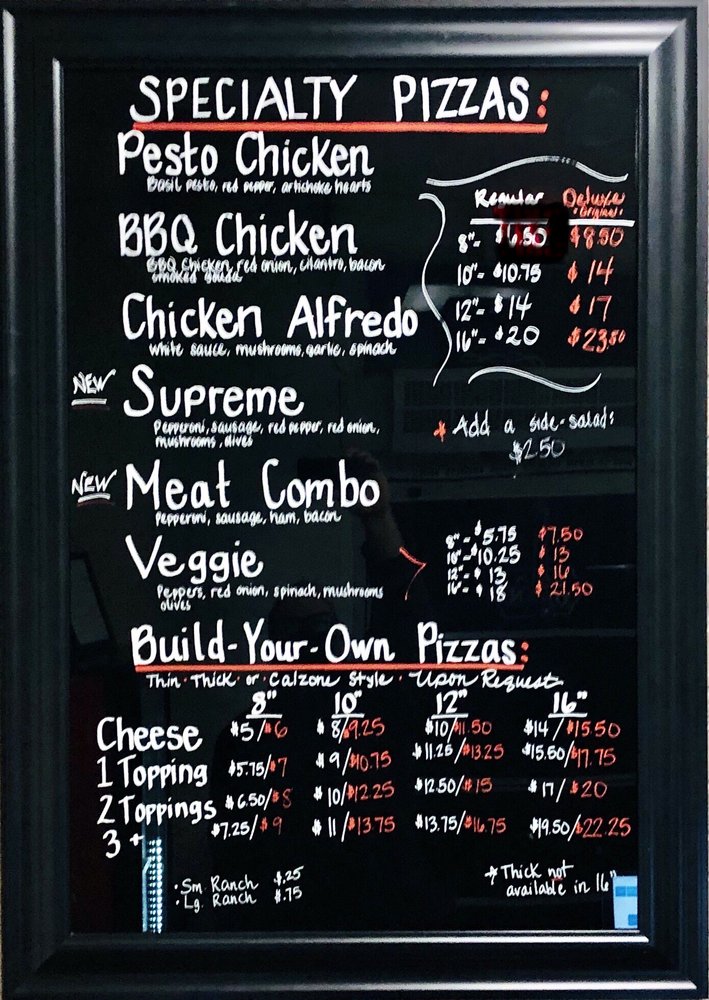 SPECIALTY PIZZAS:
Pesto Chicken
Basil pesto, red pepper, artichoke hearts
BBQ Chicken
BBQ Chicken, red onion, cilantro, bacon
smoked gouda
Chicken Alfredo
white sauce, mushrooms, garlic, spinach
NEW Supreme
Pepperoni, sausage, red pepper, red onion,
mushrooms, olives
NEW Meat Combo
pepperoni, sausage, ham, bacon
Veggie
Peppers, red onion, spinach, mushrooms
olives
Regular Deluxe
•Original•
8"- $6.50 $8.50
10"- $10.75 $14
12"- $14 $17
16"- $20 $23.50
* Add a side-salad:
$2.50
8"- $5.75 $7.50
10"- $10.25 $13
12"- $13 $16
16"- $18 $21.50
Build-Your-Own Pizzas:
Thin • Thick • or • Calzone Style • Upon Request
8" 10" 12" 16"
Cheese $5/$6 $8/$9.25 $10/$11.50 $14/$15.50
1 Topping $5.75/$7 $9/$10.75 $11.25/$13.25 $15.50/$17.75
2 Toppings $6.50/$8 $10/$12.25 $12.50/$15 $17/$20
3 + $7.25/$9 $11/$13.75 $13.75/$16.75 $19.50/$22.25
• Sm. Ranch $.25
• Lg. Ranch $.75
* Thick not
available in 16"